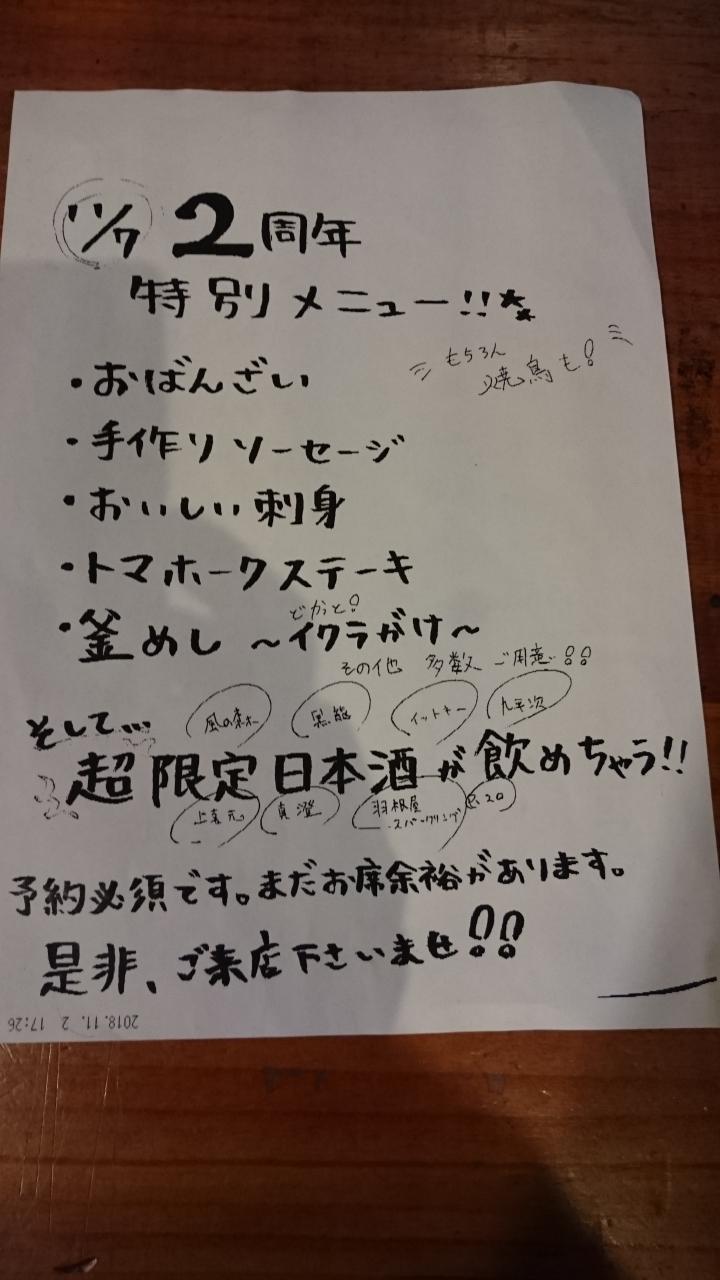 11/7 2周年
特別メニュー!!
・おばんざい
もちろん
焼鳥も!
・手作りソーセージ
・おいしい刺身
・トマホークステーキ
・釜めし ～イクラがけ～
どかっと!
その他 多数 ご用意!!
そして…
風の森 黒龍 イットキー 九平次
超限定日本酒が飲めちゃう!!
上喜元 真澄 羽根屋
スパークリング
予約必須です。まだお席余裕があります。
是非、ご来店下さいませ!!
2018.11. 2 17:26